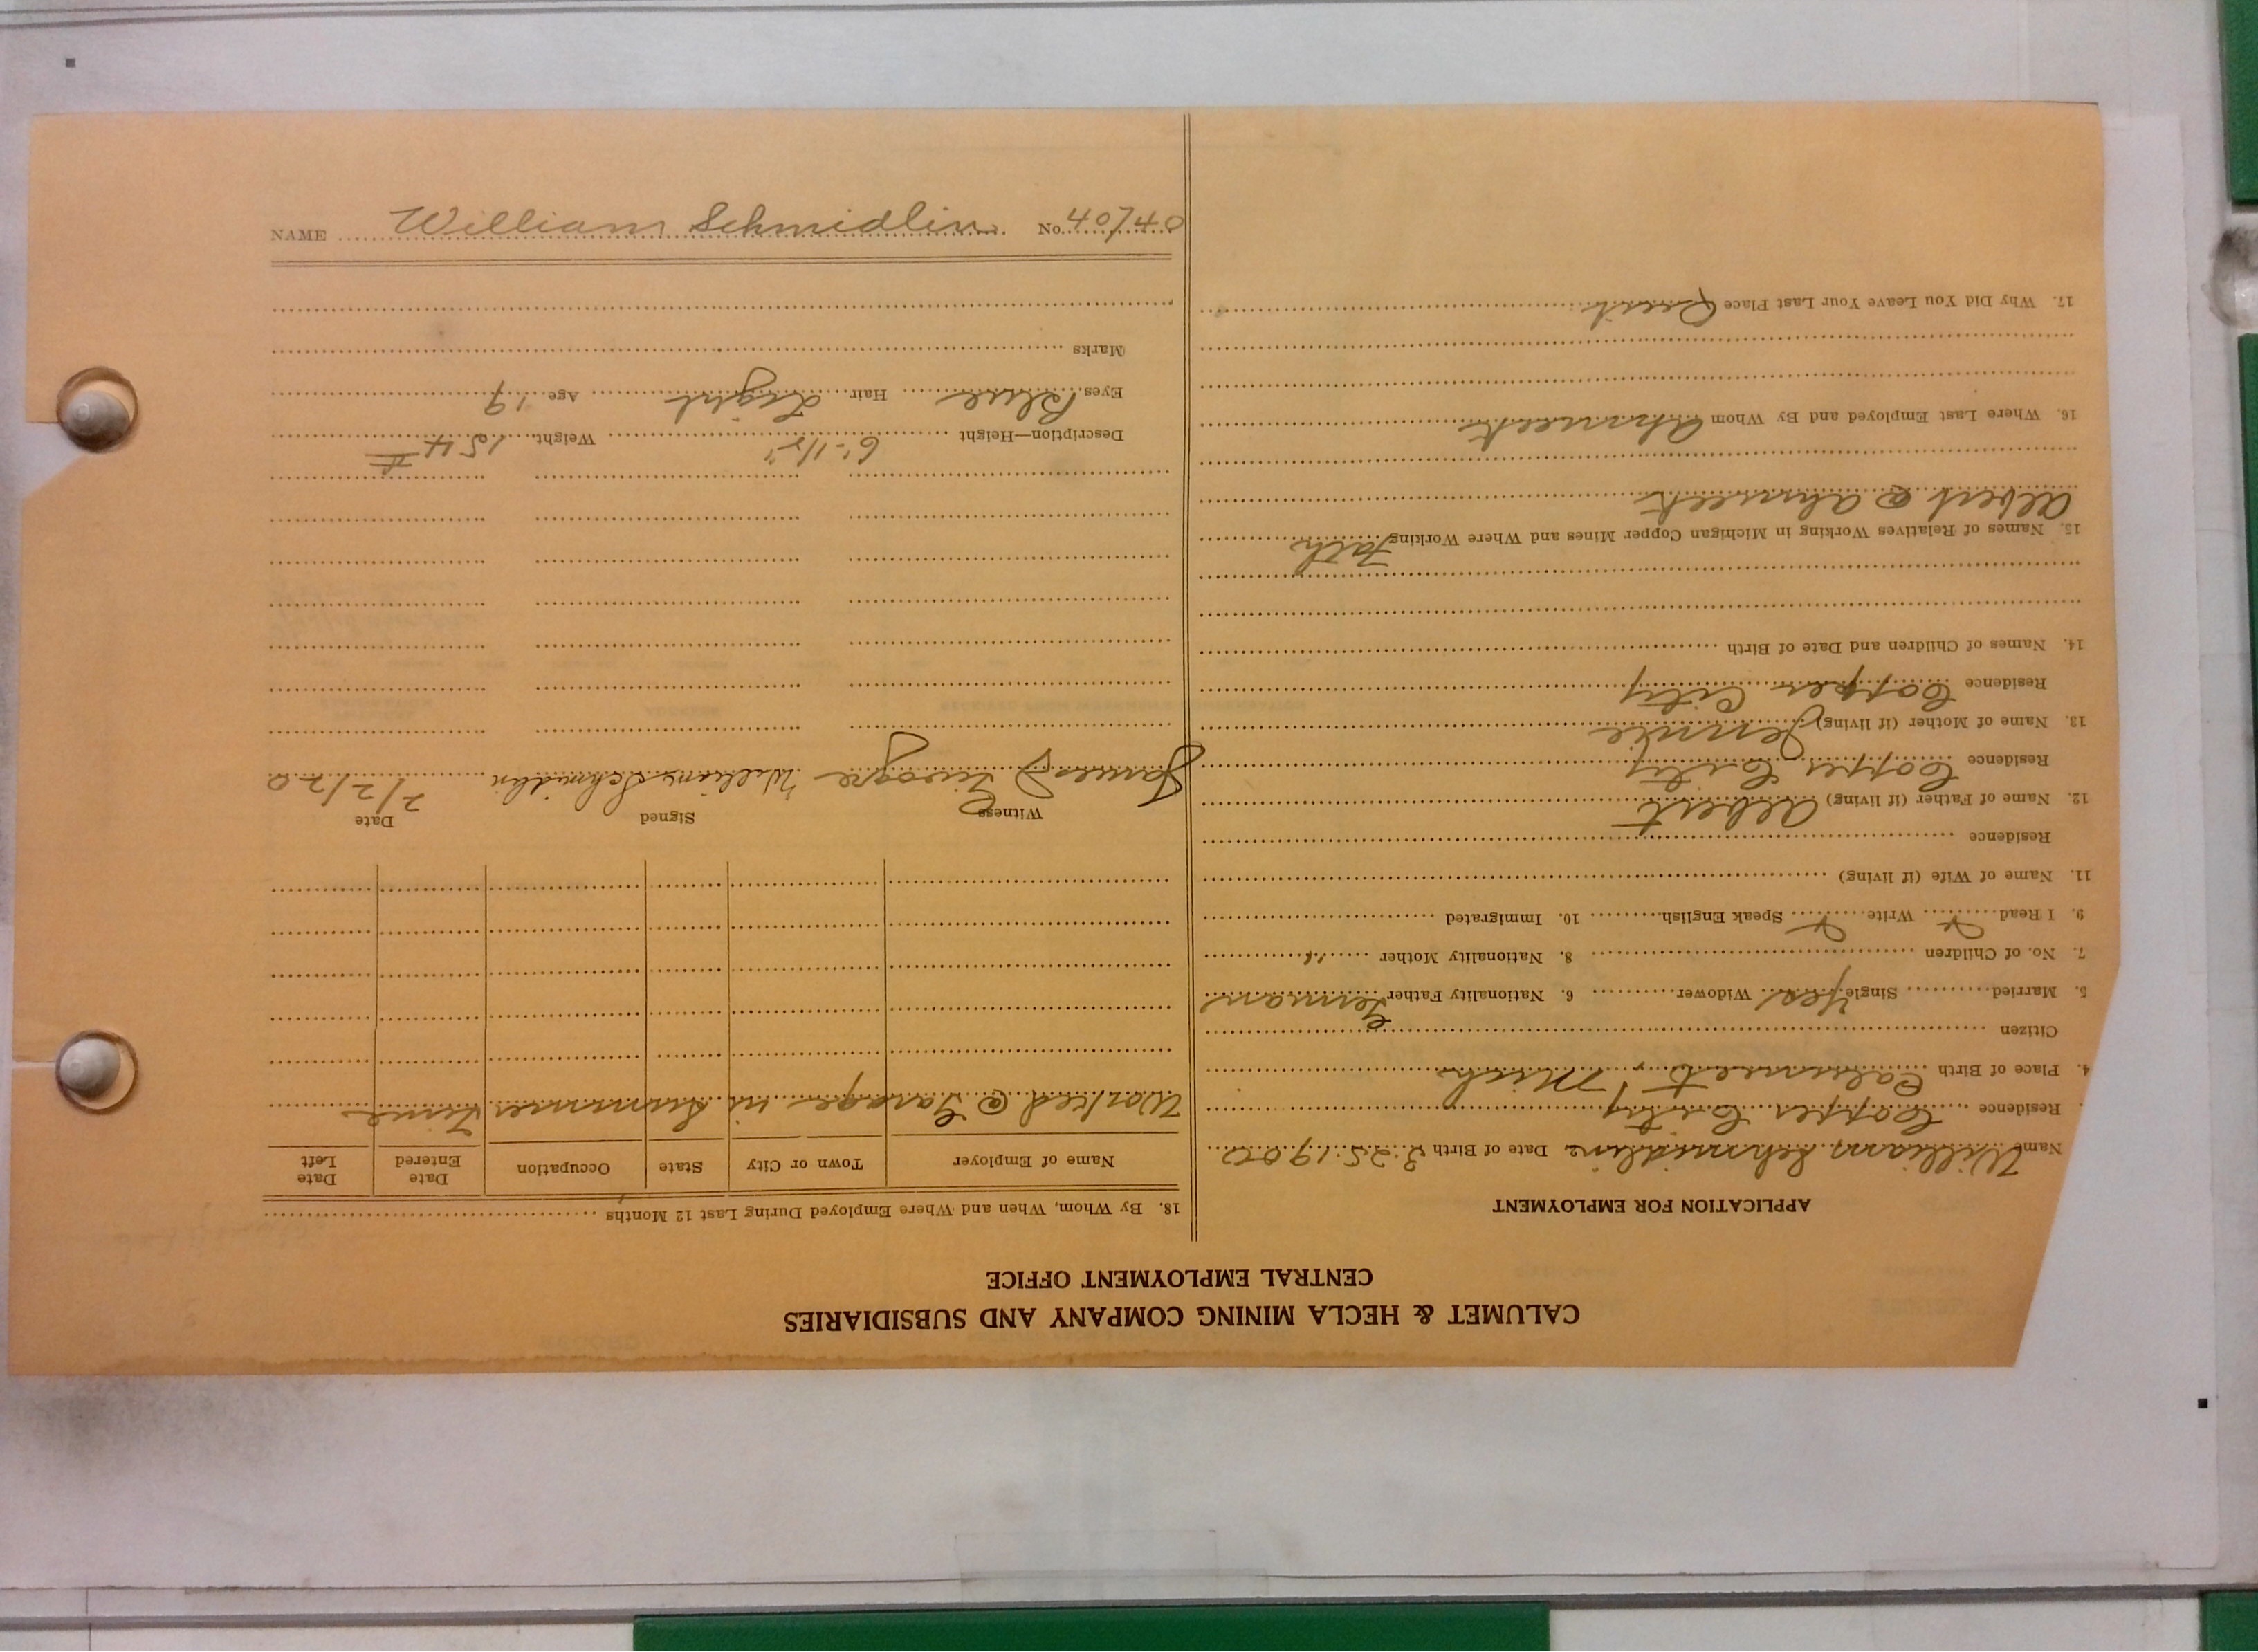 CALUMET & HECLA MINING COMPANY AND SUBSIDIARIES
CENTRAL EMPLOYMENT OFFICE
APPLICATION FOR EMPLOYMENT
Name William Schmidlin Date of Birth 3.25.1900
Residence Copper City
4. Place of Birth Calumet, Mich
Citizen
5. Married Single Yes Widower 6. Nationality Father German
7. No. of Children 8. Nationality Mother "
9. I Read Write Speak English 10. Immigrated
11. Name of Wife (if living)
Residence
12. Name of Father (if living) Albert
Residence Copper City
13. Name of Mother (if living) Jennie
Residence Copper City
14. Names of Children and Date of Birth
15. Names of Relatives Working in Michigan Copper Mines and Where Working Fath
Albert @ Ahmeek
16. Where Last Employed and By Whom Ahmeek
17. Why Did You Leave Your Last Place Quit
18. By Whom, When and Where Employed During Last 12 Months
Name of Employer Town or City State Occupation Date Entered Date Left
Worked @ Garage in Summer Time
Witness Signed Date
James William Schmidlin 2/2/20
Description—Height 6'-1½" Weight 154 #
Eyes Blue Hair Light Age 19
Marks
NAME William Schmidlin No. 40740